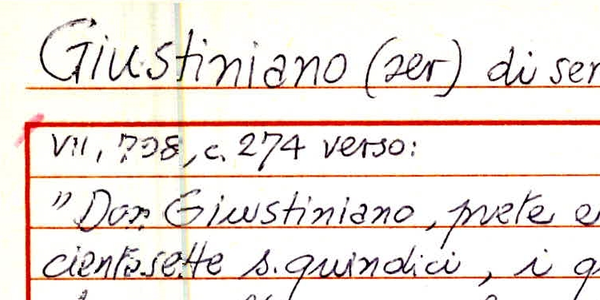 Giustiniano (ser) di ser
VII, 708, c. 274 verso:
"Don Giustiniano, prete e
cientosette s. quindici, i q